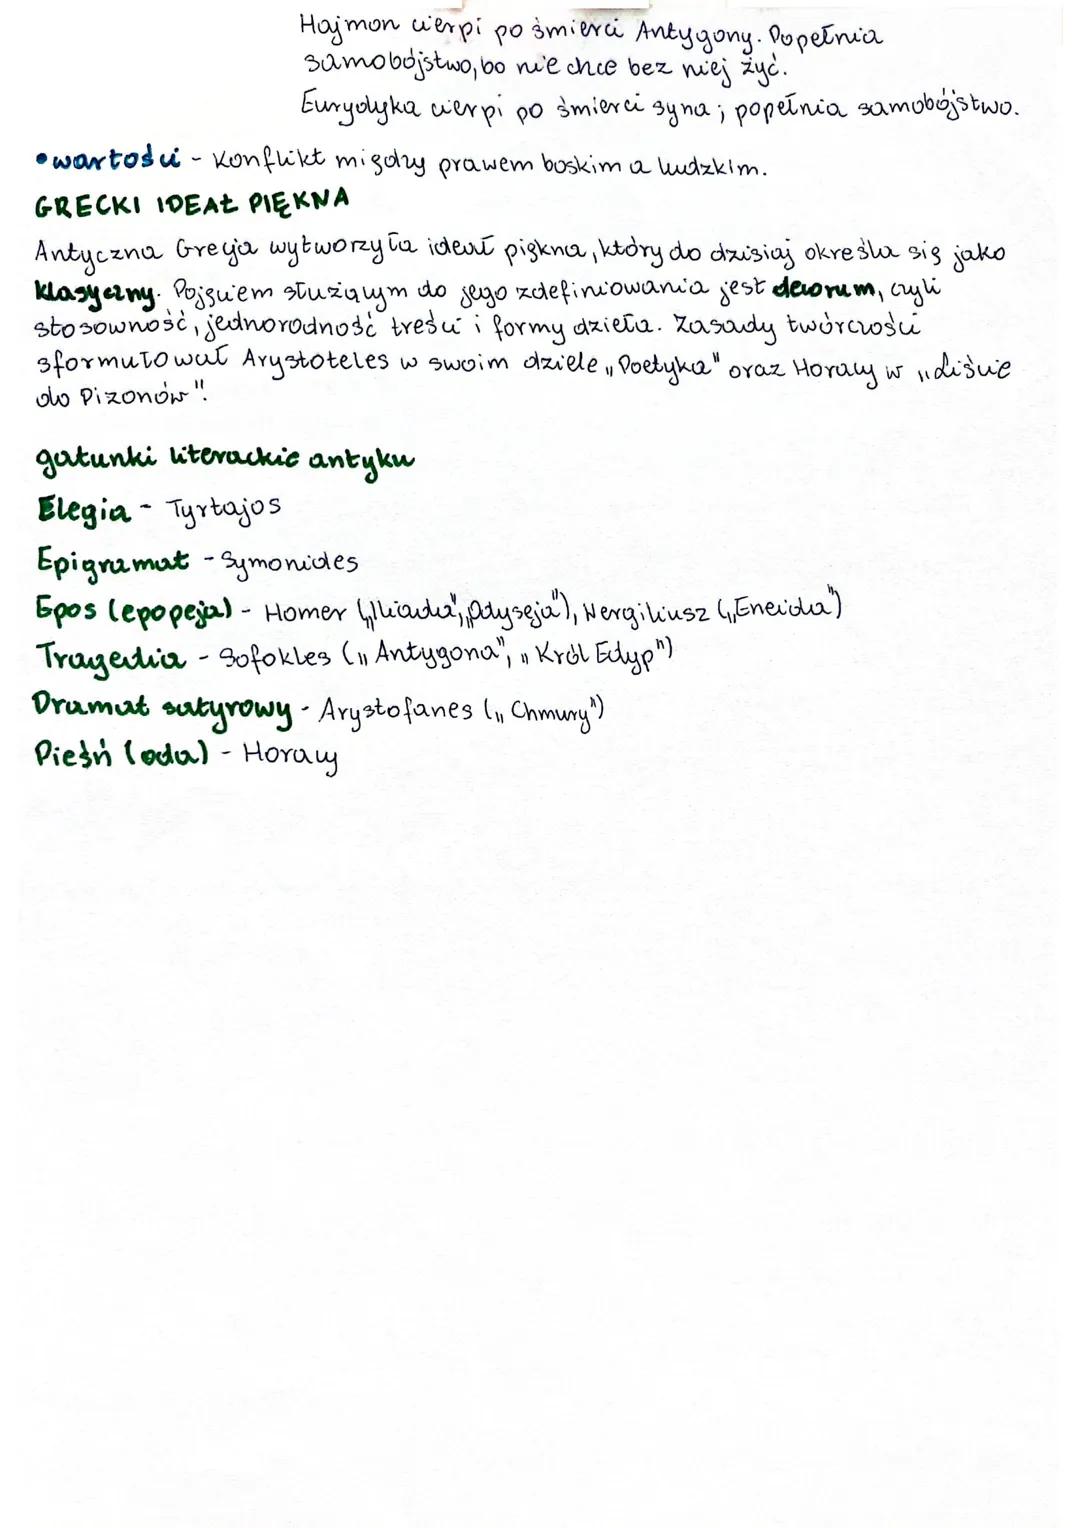 Hajmon cierpi po śmierci Antygony. Popełnia
samobójstwo, bo nie chce bez niej żyć.
Eurydyka cierpi po śmierci syna; popełnia samobójstwo.
• wartości - konflikt między prawem boskim a ludzkim.
GRECKI IDEAŁ PIĘKNA
Antyczna Grecja wytworzyła ideał piękna, który do dzisiaj określa się jako
klasyczny. Pojęciem służącym do jego zdefiniowania jest decorum, czyli
stosowność, jednorodność treści i formy dzieła. Zasady twórczości
sformułował Arystoteles w swoim dziele „Poetyka" oraz Horacy w „Liście
do Pizonów".
gatunki literackie antyku
Elegia - Tyrtajos
Epigramat - Symonides
Epos (epopeja) - Homer („Iliada", „Odyseja"), Wergiliusz („Eneida")
Tragedia - Sofokles („Antygona", „Król Edyp")
Dramat satyrowy - Arystofanes („Chmury")
Pieśń (oda) - Horacy